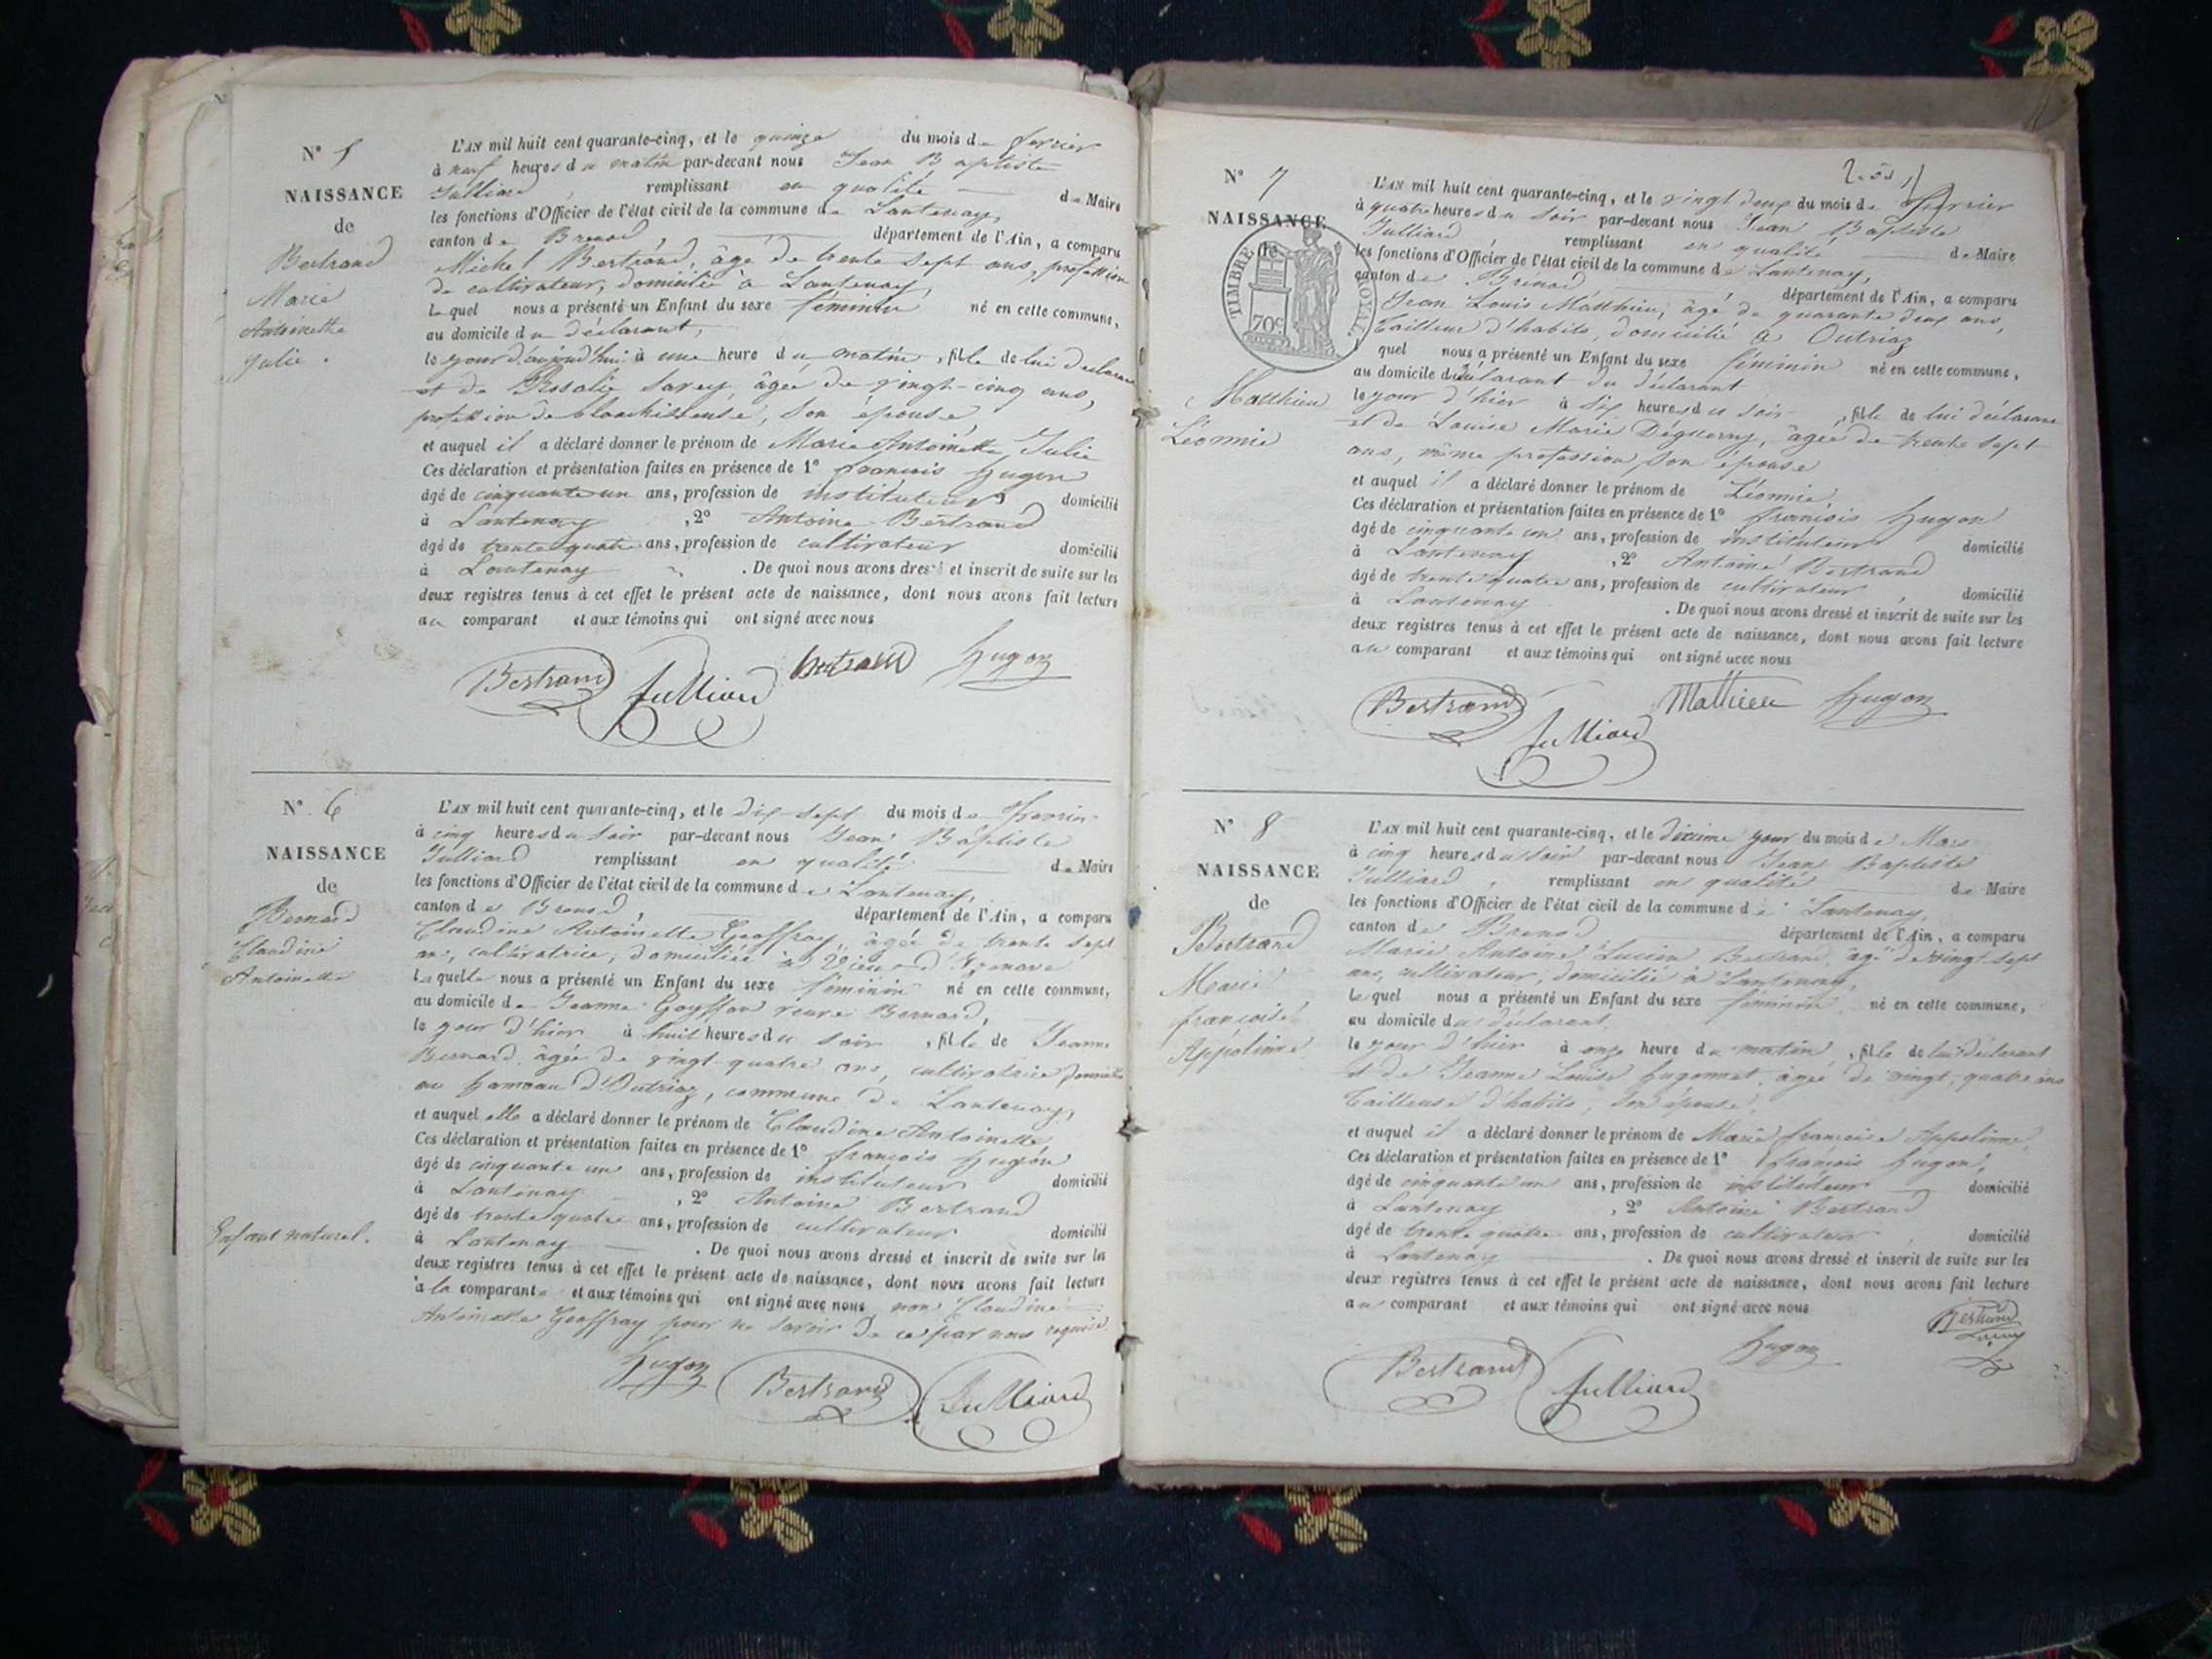 N° 5
NAISSANCE
de
Bertrand
Marie
Antoinette
Julie.
L'AN mil huit cent quarante-cinq, et le quinze du mois de fevrier
à neuf heures du matin par-devant nous Jean Baptiste
Julliard, remplissant en qualité de Maire
les fonctions d'Officier de l'état civil de la commune de Lantenay,
canton de Brenod, département de l'Ain, a comparu
Michel Bertrand, âgé de trente sept ans, profession
de cultivateur, domicilié à Lantenay,
Lequel nous a présenté un Enfant du sexe féminin né en cette commune,
au domicile du déclarant,
le jour d'aujourd'hui à une heure du matin, fille de lui déclarant
et de Rosalie Savey, âgée de vingt-cinq ans,
profession de blanchisseuse, son épouse
et auquel il a déclaré donner le prénom de Marie Antoinette Julie
Ces déclaration et présentation faites en présence de 1° françois hugon
âgé de cinquante un ans, profession de instituteur domicilié
à Lantenay, 2° Antoine Bertrand
âgé de trente quatre ans, profession de cultivateur domicilié
à Lantenay. De quoi nous avons dressé et inscrit de suite sur les
deux registres tenus à cet effet le présent acte de naissance, dont nous avons fait lecture
au comparant et aux témoins qui ont signé avec nous
Bertrand Julliard bertrand hugon
N° 6
NAISSANCE
de
Bernard
Claudine
Antoinette
Enfant naturel.
L'AN mil huit cent quarante-cinq, et le dix sept du mois de fevrier
à cinq heures du soir par-devant nous Jean Baptiste
Julliard remplissant en qualité de Maire
les fonctions d'Officier de l'état civil de la commune de Lantenay,
canton de Brenod, département de l'Ain, a comparu
Claudine Antoinette Geoffray, âgée de trente sept
ans, cultivatrice, domiciliée à Vieu d'Izenave
Laquelle nous a présenté un Enfant du sexe féminin né en cette commune,
au domicile de Jeanne Goyffon veuve Bernard,
le jour d'hier à huit heures du soir, fille de Jeanne
Bernard, âgée de vingt-quatre ans, cultivatrice domiciliée
au hameau d'Outriaz, commune de Lantenay,
et auquel elle a déclaré donner le prénom de Claudine Antoinette
Ces déclaration et présentation faites en présence de 1° françois hugon
âgé de cinquante un ans, profession de instituteur domicilié
à Lantenay, 2° Antoine Bertrand
âgé de trente quatre ans, profession de cultivateur domicilié
à Lantenay. De quoi nous avons dressé et inscrit de suite sur les
deux registres tenus à cet effet le présent acte de naissance, dont nous avons fait lecture
à la comparante et aux témoins qui ont signé avec nous, non Claudine
Antoinette Geoffray pour ne savoir de ce par nous requise.
hugon Bertrand Julliard
N° 7
NAISSANCE
de
TIMBRE ROYAL
70c
Matthieu
Léonnie
L'AN mil huit cent quarante-cinq, et le vingt deux du mois de fevrier
à quatre heures du soir par-devant nous Jean Baptiste
Julliard remplissant en qualité de Maire
les fonctions d'Officier de l'état civil de la commune de Lantenay,
canton de Brénod département de l'Ain, a comparu
Jean Louis Matthieu, âgé de quarante deux ans,
tailleur d'habits, domicilié à Outriaz
quel nous a présenté un Enfant du sexe féminin né en cette commune,
au domicile du déclarant du déclarant
le jour d'hier à six heures du soir, fille de lui déclarant
et de Louise Marie Déguerry, âgée de trente sept
ans, même profession, son épouse
et auquel il a déclaré donner le prénom de Léonnie
Ces déclaration et présentation faites en présence de 1° françois hugon
âgé de cinquante un ans, profession de instituteur domicilié
à Lantenay, 2° Antoine Bertrand
âgé de trente quatre ans, profession de cultivateur, domicilié
à Lantenay. De quoi nous avons dressé et inscrit de suite sur les
deux registres tenus à cet effet le présent acte de naissance, dont nous avons fait lecture
au comparant et aux témoins qui ont signé avec nous
Bertrand Julliard Matthieu hugon
N° 8
NAISSANCE
de
Bertrand
Marie
françoise
Appolinne
L'AN mil huit cent quarante-cinq, et le dixième jour du mois de Mars
à cinq heures du soir par-devant nous Jean Baptiste
Julliard, remplissant en qualité de Maire
les fonctions d'Officier de l'état civil de la commune de Lantenay,
canton de Brenod département de l'Ain, a comparu
Marie Antoine Lucien Bertrand, âgé de vingt sept
ans, cultivateur, domicilié à Lantenay,
Lequel nous a présenté un Enfant du sexe féminin né en cette commune,
au domicile du déclarant,
le jour d'hier à onze heure du matin, fille de lui déclarant
et de Jeanne Louise hugonnet, âgée de vingt-quatre ans
tailleuse d'habits, son épouse,
et auquel il a déclaré donner le prénom de Marie françoise Appolinne
Ces déclaration et présentation faites en présence de 1° françois hugon,
âgé de cinquante un ans, profession de instituteur domicilié
à Lantenay, 2° Antoine Bertrand
âgé de trente quatre ans, profession de cultivateur domicilié
à Lantenay. De quoi nous avons dressé et inscrit de suite sur les
deux registres tenus à cet effet le présent acte de naissance, dont nous avons fait lecture
au comparant et aux témoins qui ont signé avec nous
Bertrand Julliard hugon Bertrand